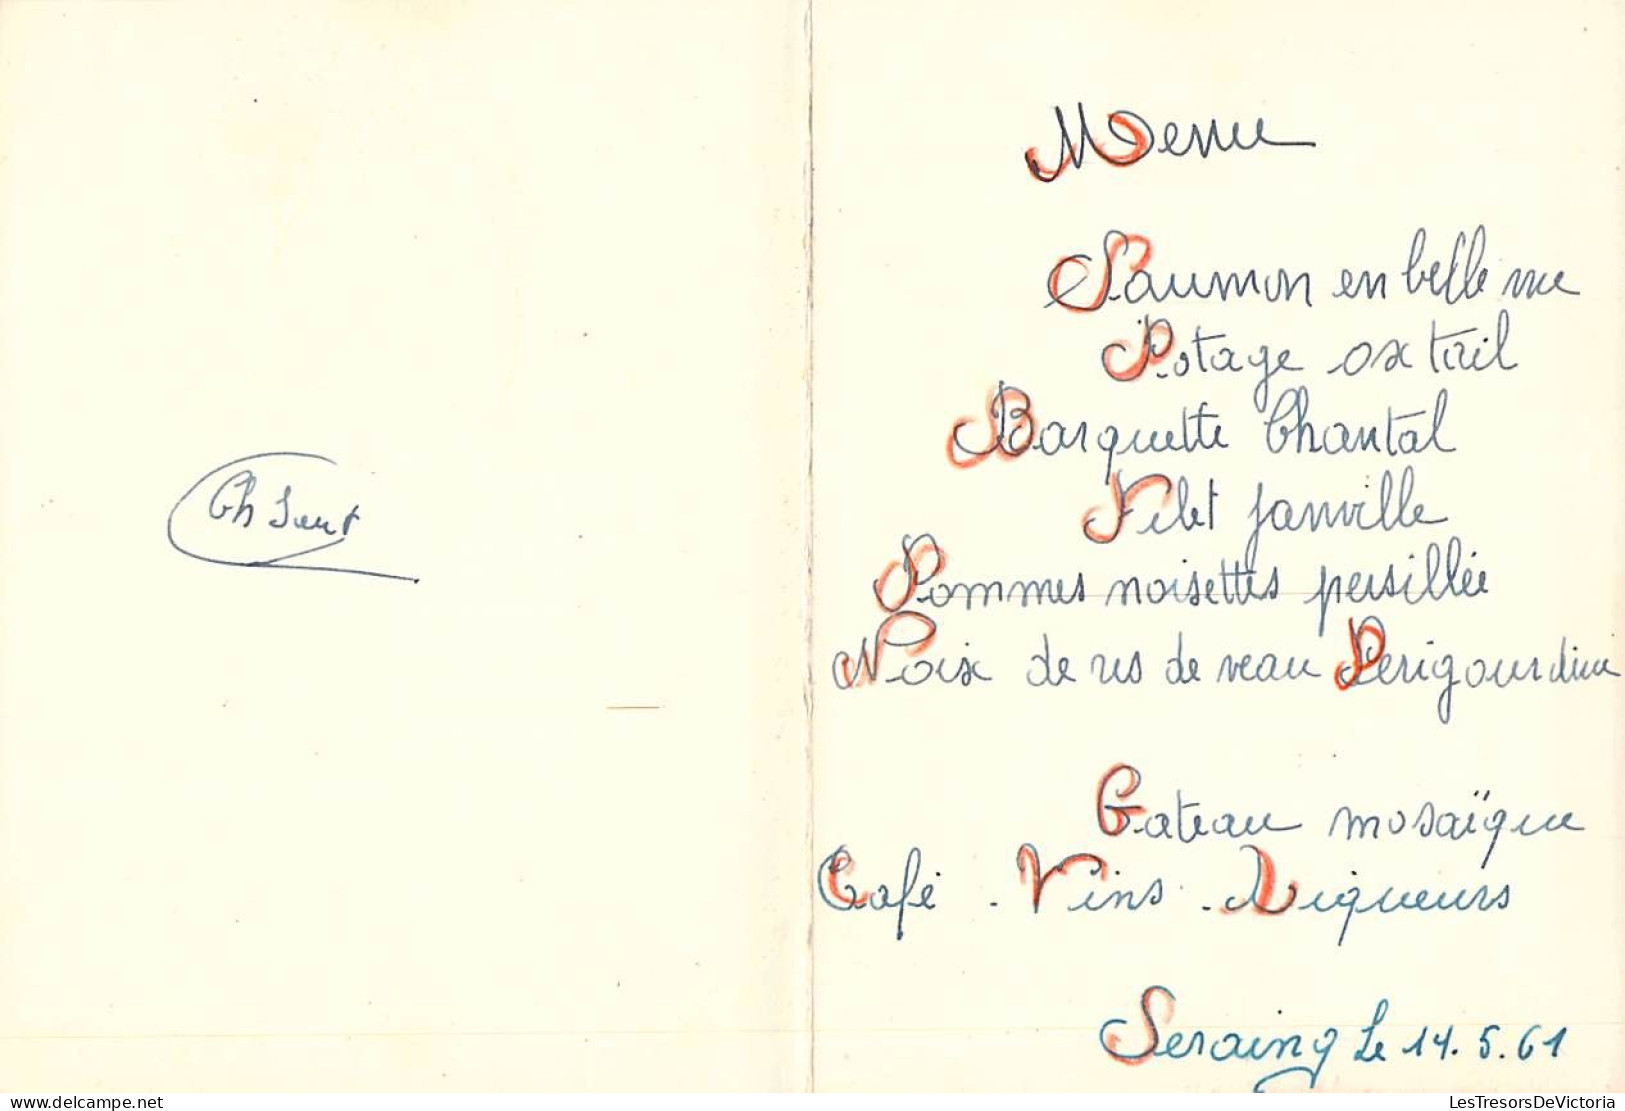 Ch
Menu
Saumon en belle vue
Potage ox tail
Barquette Chantal
Filet Janville
Pommes noisettes persillée
Noix de ris de veau Perigourdine
Gateau mosaïque
Café - Vins - Liqueurs
Seraing Le 14.5.61
delcampe.net
LesTresorsDeVictoria